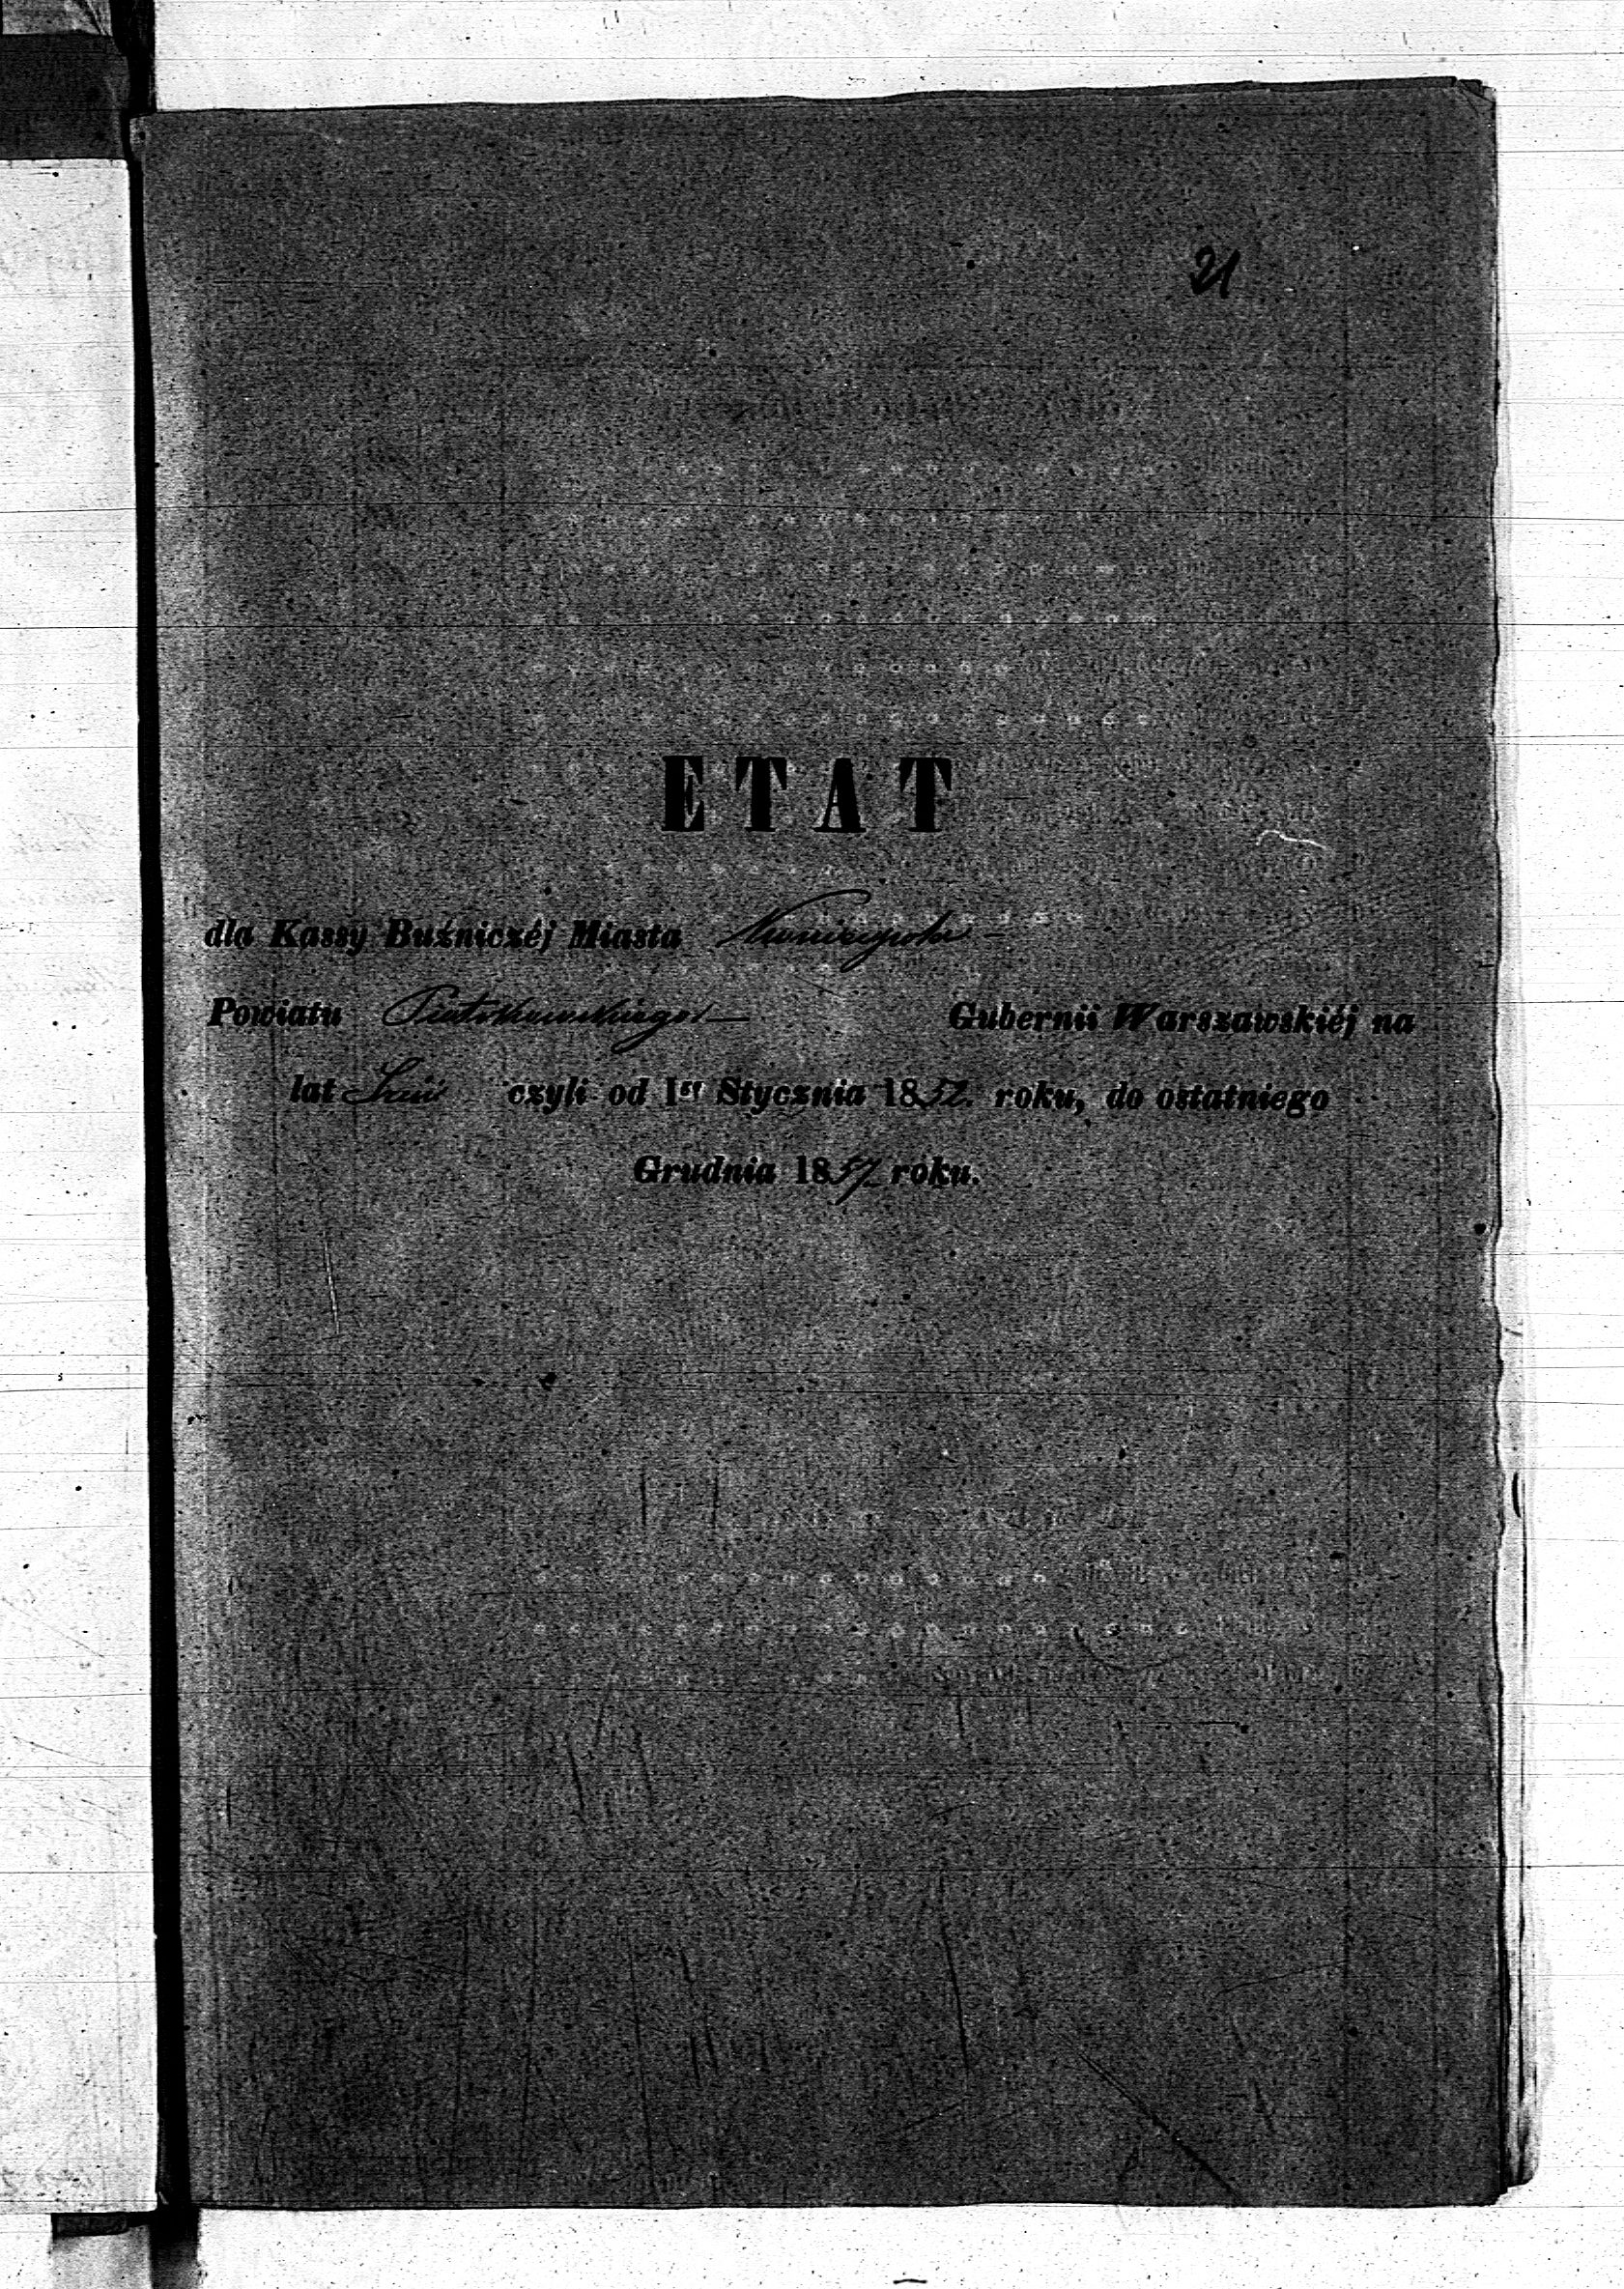 21
ETAT
dla Kassy Buźniczéj Miasta Koniecpola
Powiatu Piotrkowskiego Gubernii Warszawskiéj na
lat czyli od 1go Stycznia 1852. roku, do ostatniego
Grudnia 1857 roku.